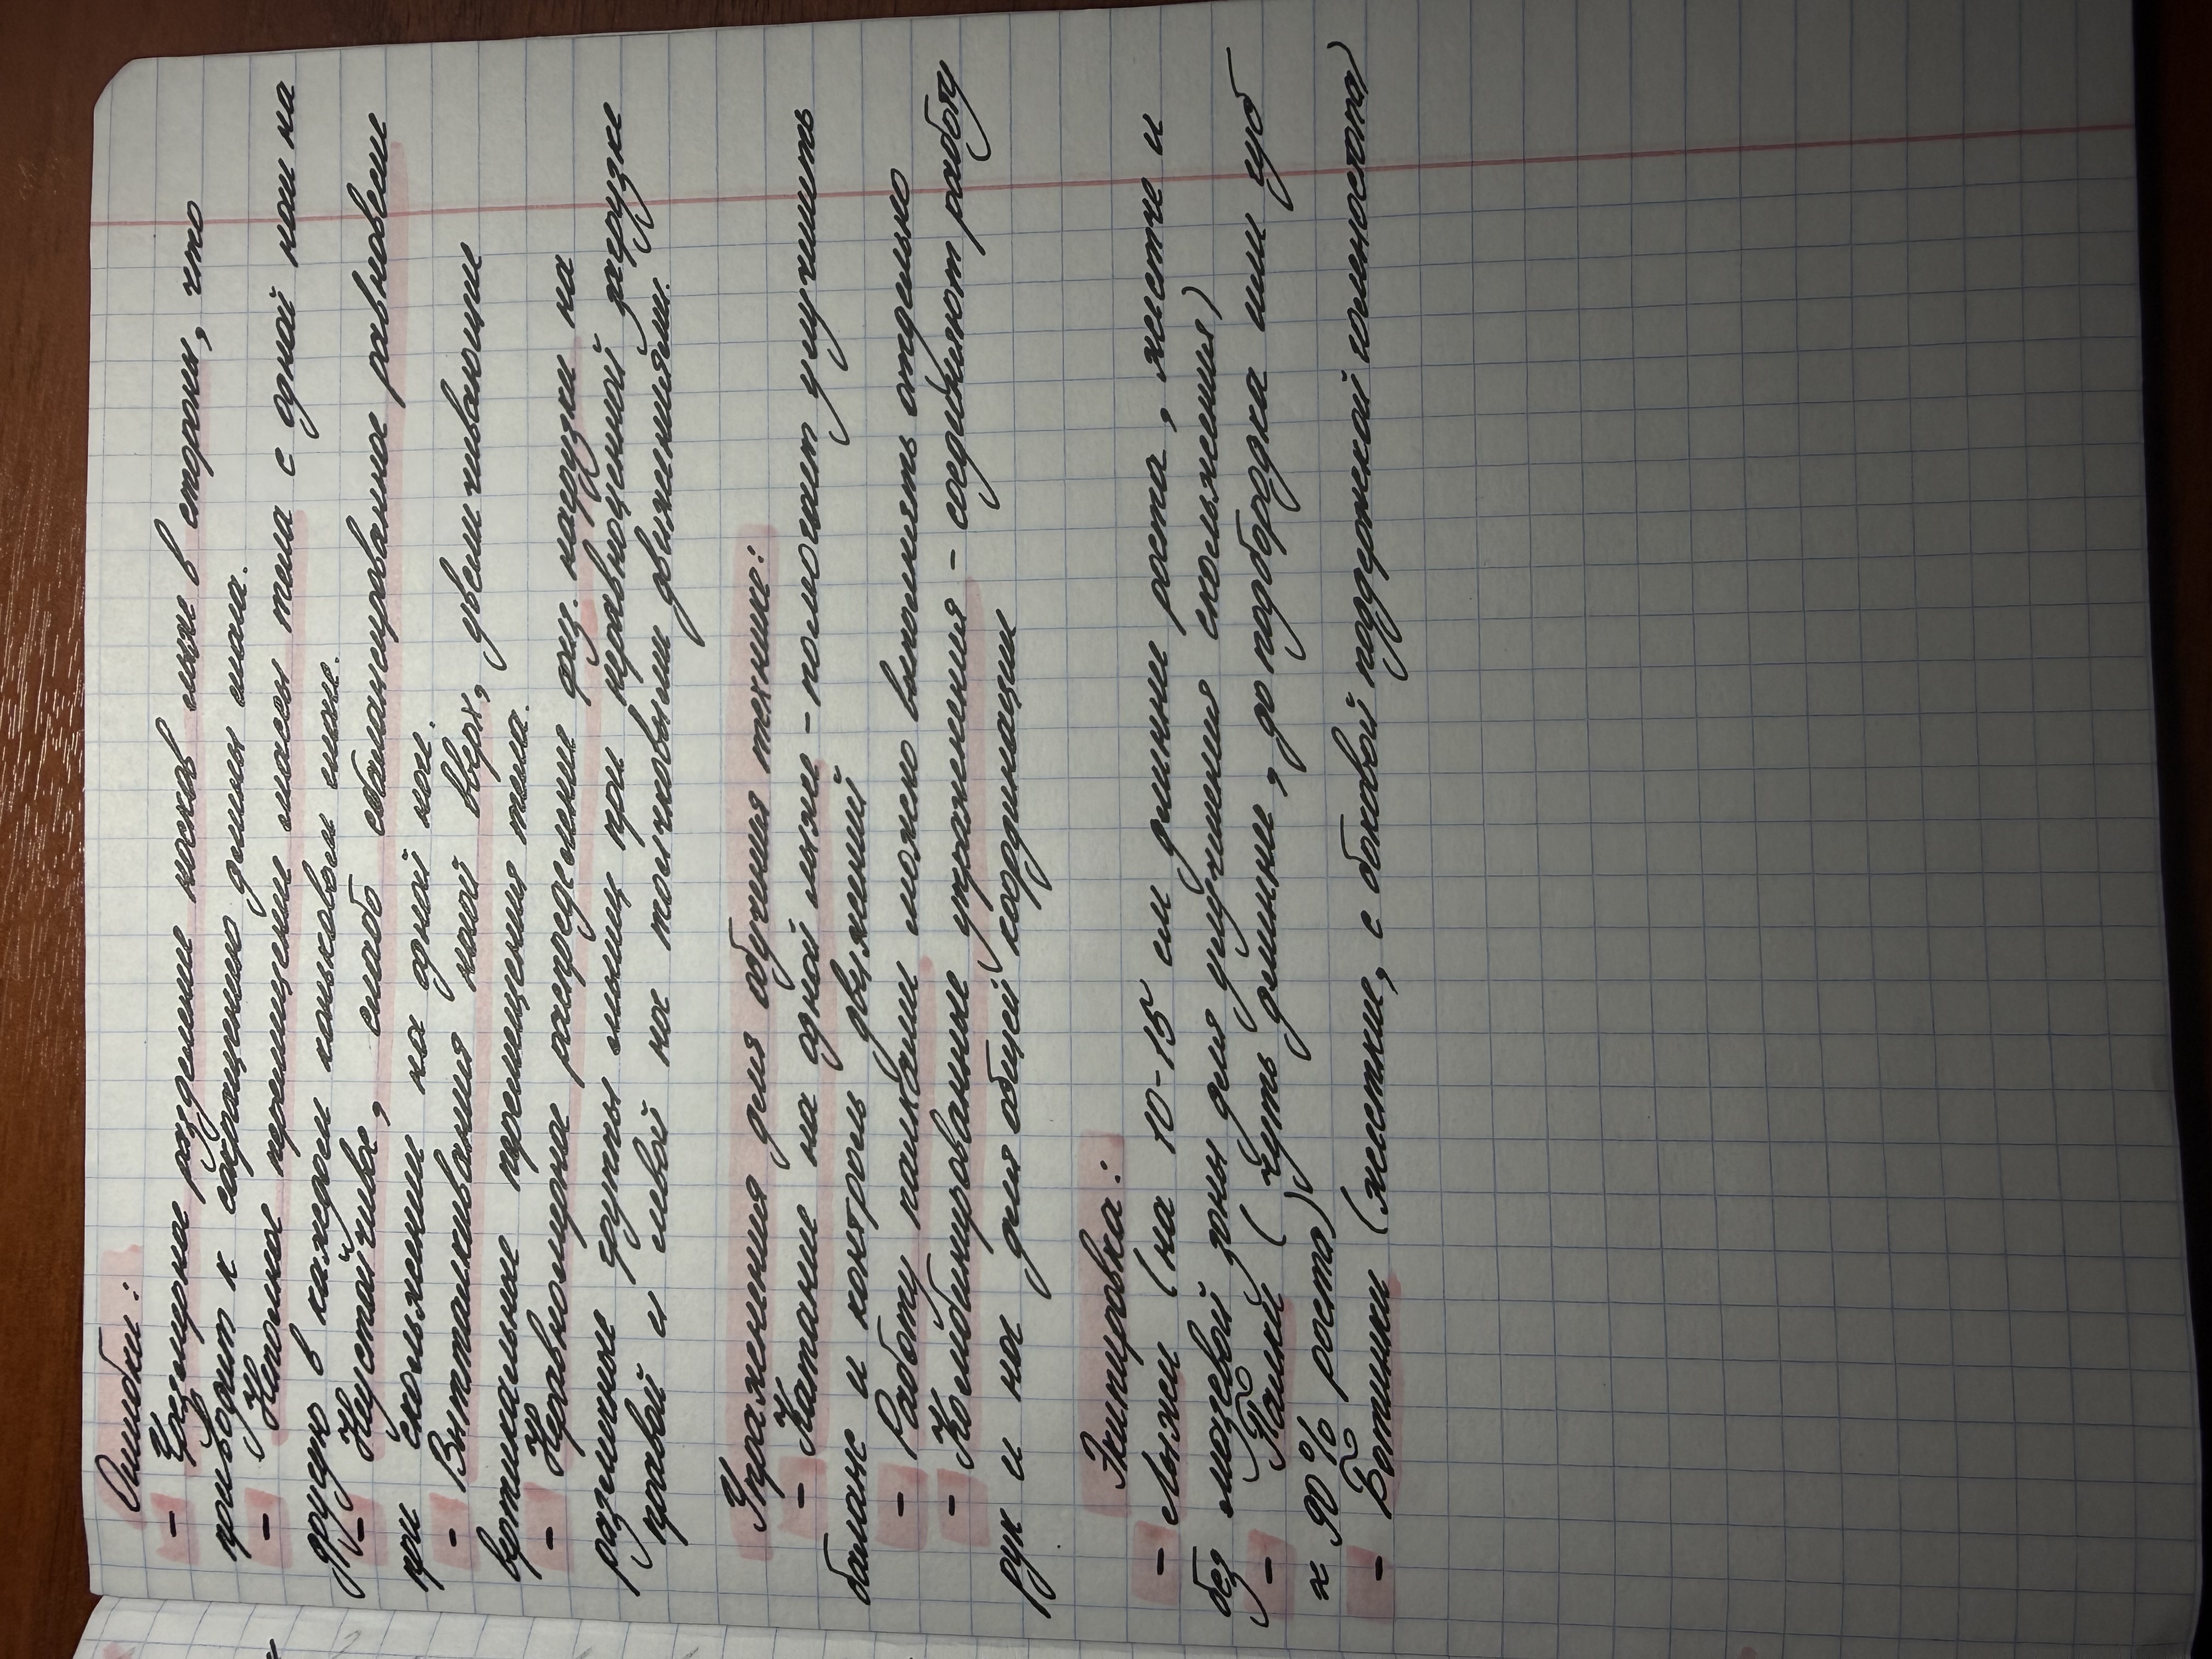 Ошибки:
- Чрезмерное разделение носков лыже в стороны, что
приводит к сокращению длины шага.
- Неполное перемещение массы тела с одной ноги на
другую в каждом коньковом шаге.
- Неустойчивое, слабо сбалансированное равновесие
при скольжении на одной ноге.
- Выталкивания ногой вверх, увеличивающие
вертикальные перемещения тела.
- Неравномерное распределение физ. нагрузки на
различные группы мышц при неравноценной загрузке
правой и левой ног толчковыми движениями.
Упражнения для обучения технике:
- Катание на одной лыже - помогает улучшить
баланс и контроль движений
- Работу палками можно выполнять отдельно
- Комбинированные упражнения - соединяют работу
рук и ног для общей координации
Экипировка:
- Лыжи (на 10-15 см длиннее роста, жестче и
без мазевой зоны для улучшения скольжения)
- Палки (чуть длиннее, до подбородка или губ
≈ 90% роста)
- Ботинки (жесткие, с боковой поддержкой голеностопа)